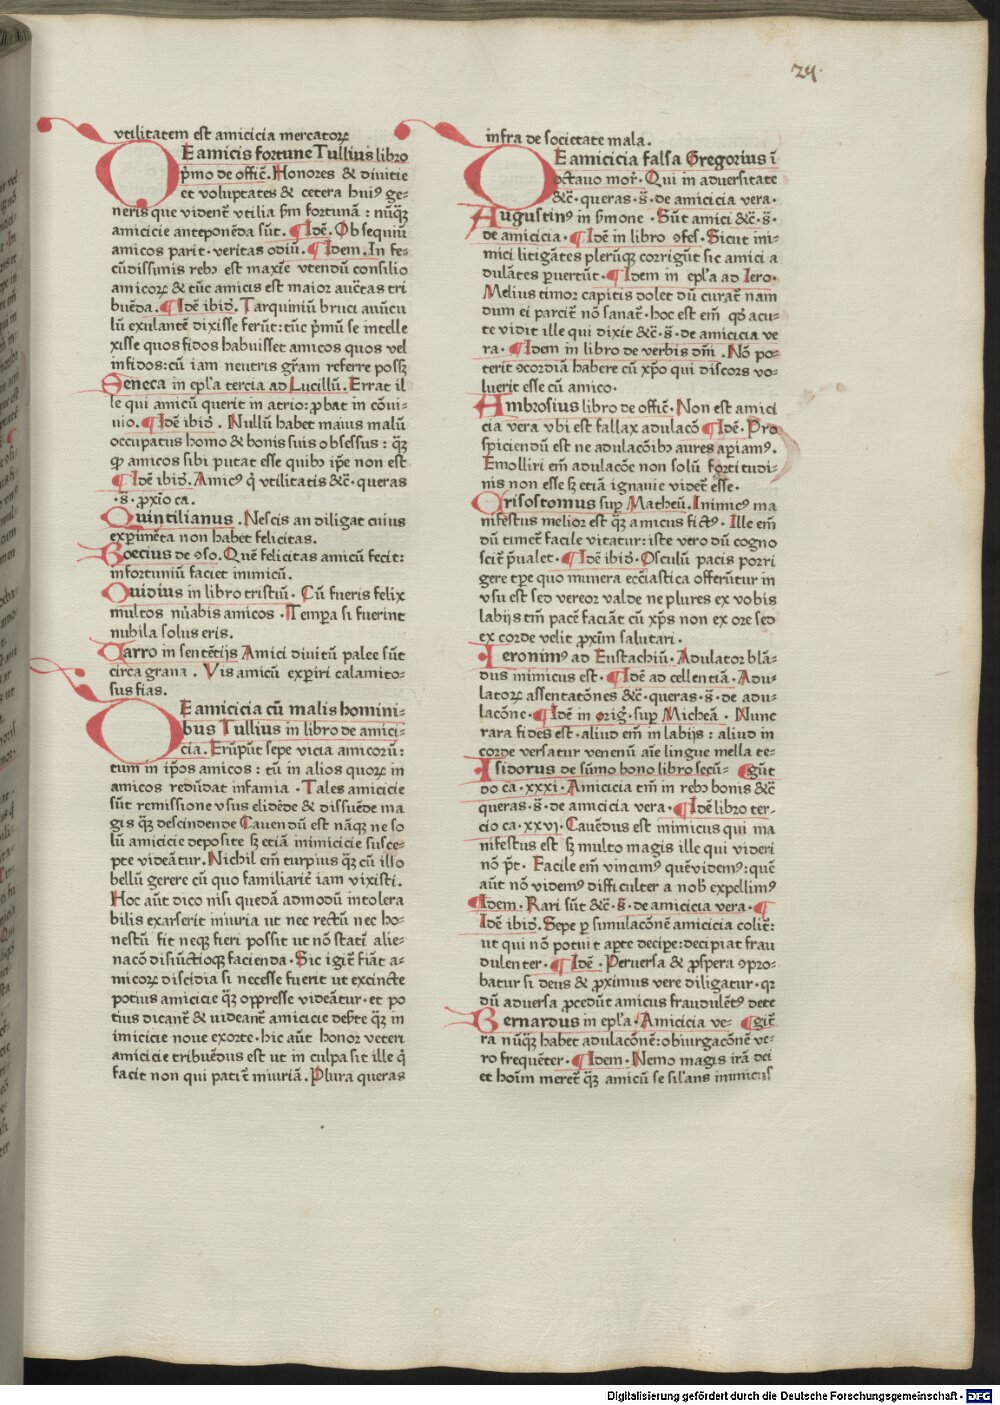 24.
vtilitatem est amicicia mercatoꝝ
DE amicis fortune Tullius libro
p̄mo de offic̄. Honores & diuitie
et voluptates & cetera huiꝰ ge⸗
neris que vident̄ vtilia s̄m fortunā : nūq̄ꝫ
amicicie anteponēda sūt. ¶Idē. Obsequiū
amicos parit · veritas odiū. ¶Idem. In fe⸗
cūdissimis rebꝰ est maxīe vtendū consilio
amicoꝝ & tūc amicis est maior auctas tri
buēda. ¶Idē ibid̄. Tarquiniū bruci auūcu
lū exulantē dixisse ferūt: tūc p̄mū se intelle
xisse quos fidos habuisset amicos quos vel
infidos: cū iam neutris gr̄am referre possꝫ
Seneca in ep̄la tercia ad Lucillū. Errat il
le qui amicū querit in atrio: ꝓbat in cōui⸗
uio. ¶Idē ibid̄. Nullū habet maius malū
occupatus homo & bonis suis obsessus : q̄ꝫ
ꝙ amicos sibi putat esse quibꝰ ip̄e non est
¶Idē ibid̄. Amicꝰ q̇ vtilitatis &c̄ · queras
·s̄· ꝓxīo ca.
Quintilianus . Nescis an diligat cuius
experimēta non habet felicitas.
Boecius de ꝯso. Quē felicitas amicū fecit:
infortuniū faciet inimicū.
Ouidius in libro tristiū · Cū fueris felix
multos nūabis amicos · Tempa si fuerint
nubila solus eris.
Varro in sentētijs Amici diuitū palee sūt
circa grana . Vis amicū experiri calamito⸗
sus fias.
DE amicicia cū malis homini⸗
bus Tullius in libro de amici⸗
cia. Erūpūt sepe vicia amicorū:
tum in ip̄os amicos : tū in alios quoꝝ in
amicos redūdat infamia · Tales amicicie
sūt remissione vsus elidēde & dissuēde ma
gis q̄ꝫ descindende Cauendū est nāq̄ꝫ ne so
lū amicicie deposite sꝫ etiā inimicicie susce⸗
pte videātur. Nichil em̄ turpius q̄ꝫ cū illo
bellū gerere cū quo familiarit̄ iam vixisti.
Hoc aūt dico nisi quedā admodū intolera
bilis exarserit iniuria ut nec rectū nec ho⸗
nestū fit neqꝫ fieri possit ut nō statī alie⸗
nacō disiūctioqꝫ facienda · Sic igit̄ fiāt a⸗
micoꝝ discidia si necesse fuerit ut excincte
potius amicicie q̄ꝫ oppresse videātur · et po
tius dicant̄ & uideant̄ amicicie deb̄te q̄ꝫ in
imicicie noue exorte · hic aūt honor veteri
amicicie tribuēdus est ut in culpa sit ille q̇
facit non qui patit̄ iniuriā. Plura queras
infra de societate mala.
DE amicicia falsa Gregorius ī
octauo mor̄ · Qui in aduersitate
&c̄ · queras ·s̄· de amicicia vera ·
Augustinꝰ in s̄mone · Sūt amici &c̄ ·s̄·
de amicicia · ¶Idē in libro ꝯfes. Sicut ini⸗
mici litigātes plerūqꝫ corrigūt sic amici a
dulātes ꝑuertūt · ¶Idem in ep̄la ad Iero·
Melius timor capitis dolet dū curat̄ nam
dum ei parcit̄ nō sanat̄ · hoc est em̄ qd̄ acu⸗
te vidit ille qui dixit &c̄ ·s̄· de amicicia ve
ra · ¶Idem in libro de verbis dn̄i . Nō po⸗
terit ꝯcordiā habere cū xp̄o qui discors vo⸗
luerit esse cū amico·
Ambrosius libro de offic̄ · Non est amici
cia vera vbi est fallax adulacō ¶Idē · Pro
spiciendū est ne adulacōibꝰ aures apiamꝰ.
Emolliri em̄ adulacōe non solū fortitudi⸗
nis non esse sꝫ etiā ignauie videt̄ esse·
Crisostomus sup̄ Matheū. Inimicꝰ ma
nifestus melior est q̄ꝫ amicus fictꝰ · Ille em̄
dū timet̄ facile vitatur: iste vero dū cogno
scit̄ p̄ualet · ¶Idē ibid̄ · Osculū pacis porri
gere tp̄e quo munera eccīastica offerūtur in
vsu est sed vereor valde ne plures ex vobis
labijs tm̄ pacē faciāt cū xp̄s non ex ore sed
ex corde velit ꝓxīm salutari ·
Ieronimꝰ ad Eustachiū · Adulator blā⸗
dus inimicus est · ¶Idē ad cellentiā · Adu⸗
latoꝝ assentatōnes &c̄ · queras ·s̄· de adu⸗
lacōne · ¶Idē in oriḡ · sup̄ Micheā . Nunc
rara fides est · aliud em̄ in labijs : aliud in
corde versatur venenū aīe lingue mella te⸗
Isidorus de sūmo bono libro secū⸗ ¶gūt
do ca · xxxi · Amicicia tm̄ in rebꝰ bonis &c̄
queras ·s̄· de amicicia vera · ¶Idē libro ter⸗
cio ca · xxvi · Cauēdus est inimicus qui ma
nifestus est sꝫ multo magis ille qui videri
nō p̄t · Facile em̄ vincimꝰ quēvidemꝰ: quē
aūt nō videmꝰ difficulter a nob̄ expellimꝰ
¶Idem · Rari sūt &c̄ ·s̄· de amicicia vera · ¶
Idē ibid̄. Sepe ꝑ simulacōnē amicicia colit̄:
ut qui nō potuit apte decipe: decipiat frau
dulenter · ¶Idē · Peruersa & ꝓspera ꝯpro⸗
batur si deus & ꝓximus vere diligatur · qꝛ
dū aduersa ꝓcedūt amicus fraudulētꝰ dete
Bernardus in ep̄la · Amicicia ve⸗ ¶git̄
ra nūq̄ꝫ habet adulacōnē: obiurgacōnē ve⸗
ro frequēter · ¶Idem · Nemo magis irā dei
et hoīm meret̄ q̄ꝫ amicū se sil'ans inimicus
Digitalisierung gefördert durch die Deutsche Forschungsgemeinschaft - DFG